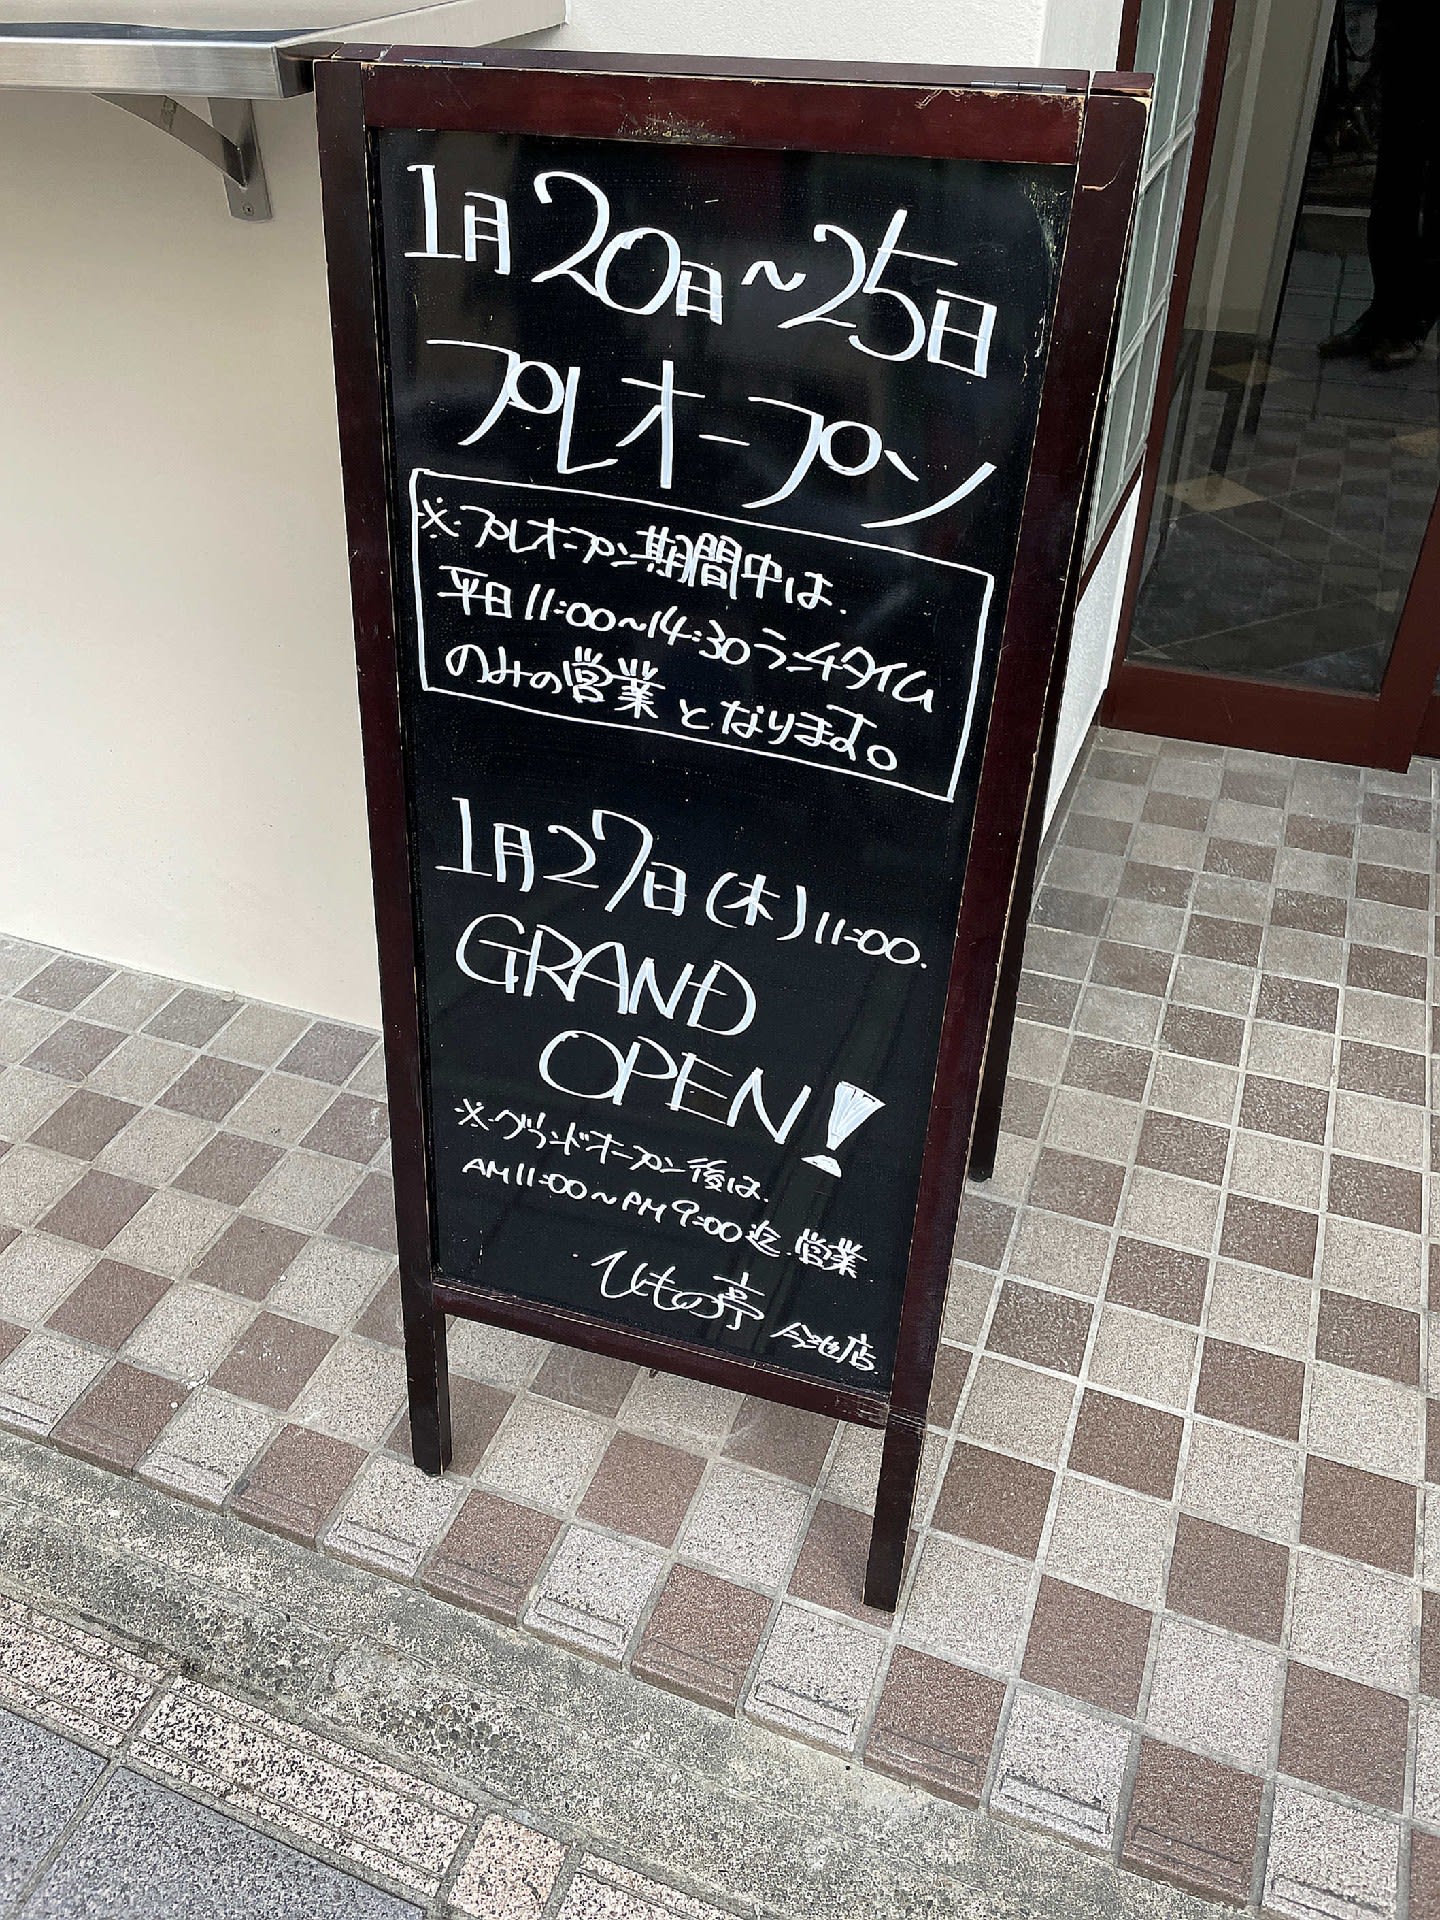 1月20日～25日
プレオープン
※プレオープン期間中は、
平日11:00～14:30ランチタイム
のみの営業となります。
1月27日(木)11:00.
GRAND
OPEN!
※グランドオープン後は、
AM11:00～PM9:00迄営業
ひもの亭 今池店